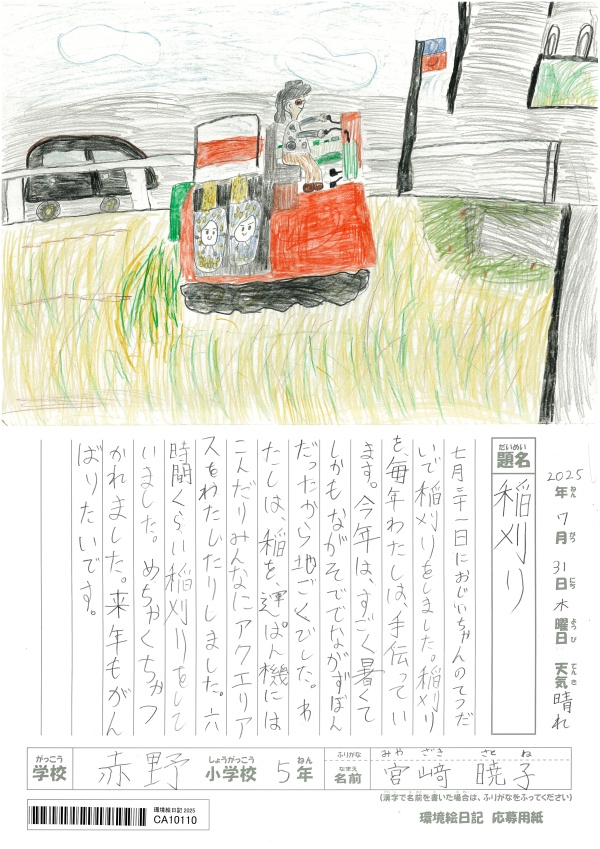 2025年7月31日木曜日 天気晴れ
ねん がつ にち ようび てんき
だいめい
題名
稲刈り
七月三十一日におじいちゃんのてつだ
いで稲刈りをしました。稲刈り
を毎年わたしは、手伝ってい
ます。今年は、すごく暑くて
しかもながそででながずぼん
だったから地ごくでした。わ
たしは、稲を、運ぱん機には
こんだりみんなにアクエリア
スをわたしたりしました。六
時間くらい稲刈りをして
いました。めちゃくちゃつ
かれました。来年もがん
ばりたいです。
がっこう しょうがっこう ねん ふりがな みやざき さとね
学校 赤野小学校 5年 なまえ 名前 宮﨑 暁子
(漢字で名前を書いた場合は、ふりがなをふってください)
環境絵日記 2025
CA10110
環境絵日記 応募用紙